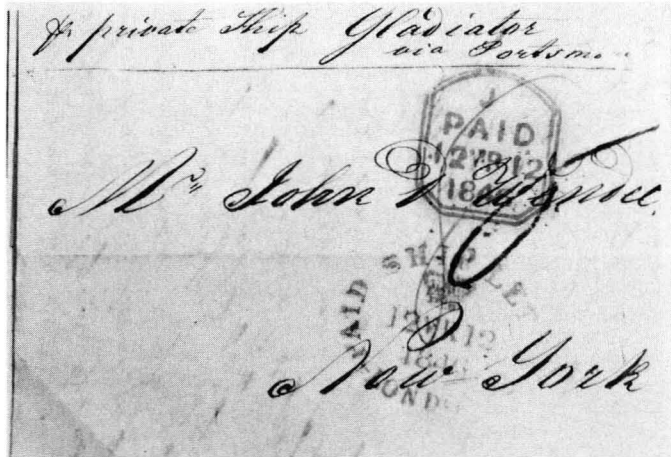 pr private Ship Gladiator
via Portsmo
J
PAID
12 MR 12
184
Mr. John
PAID SHIP LET
12 MR 12
1846
LONDO
New York